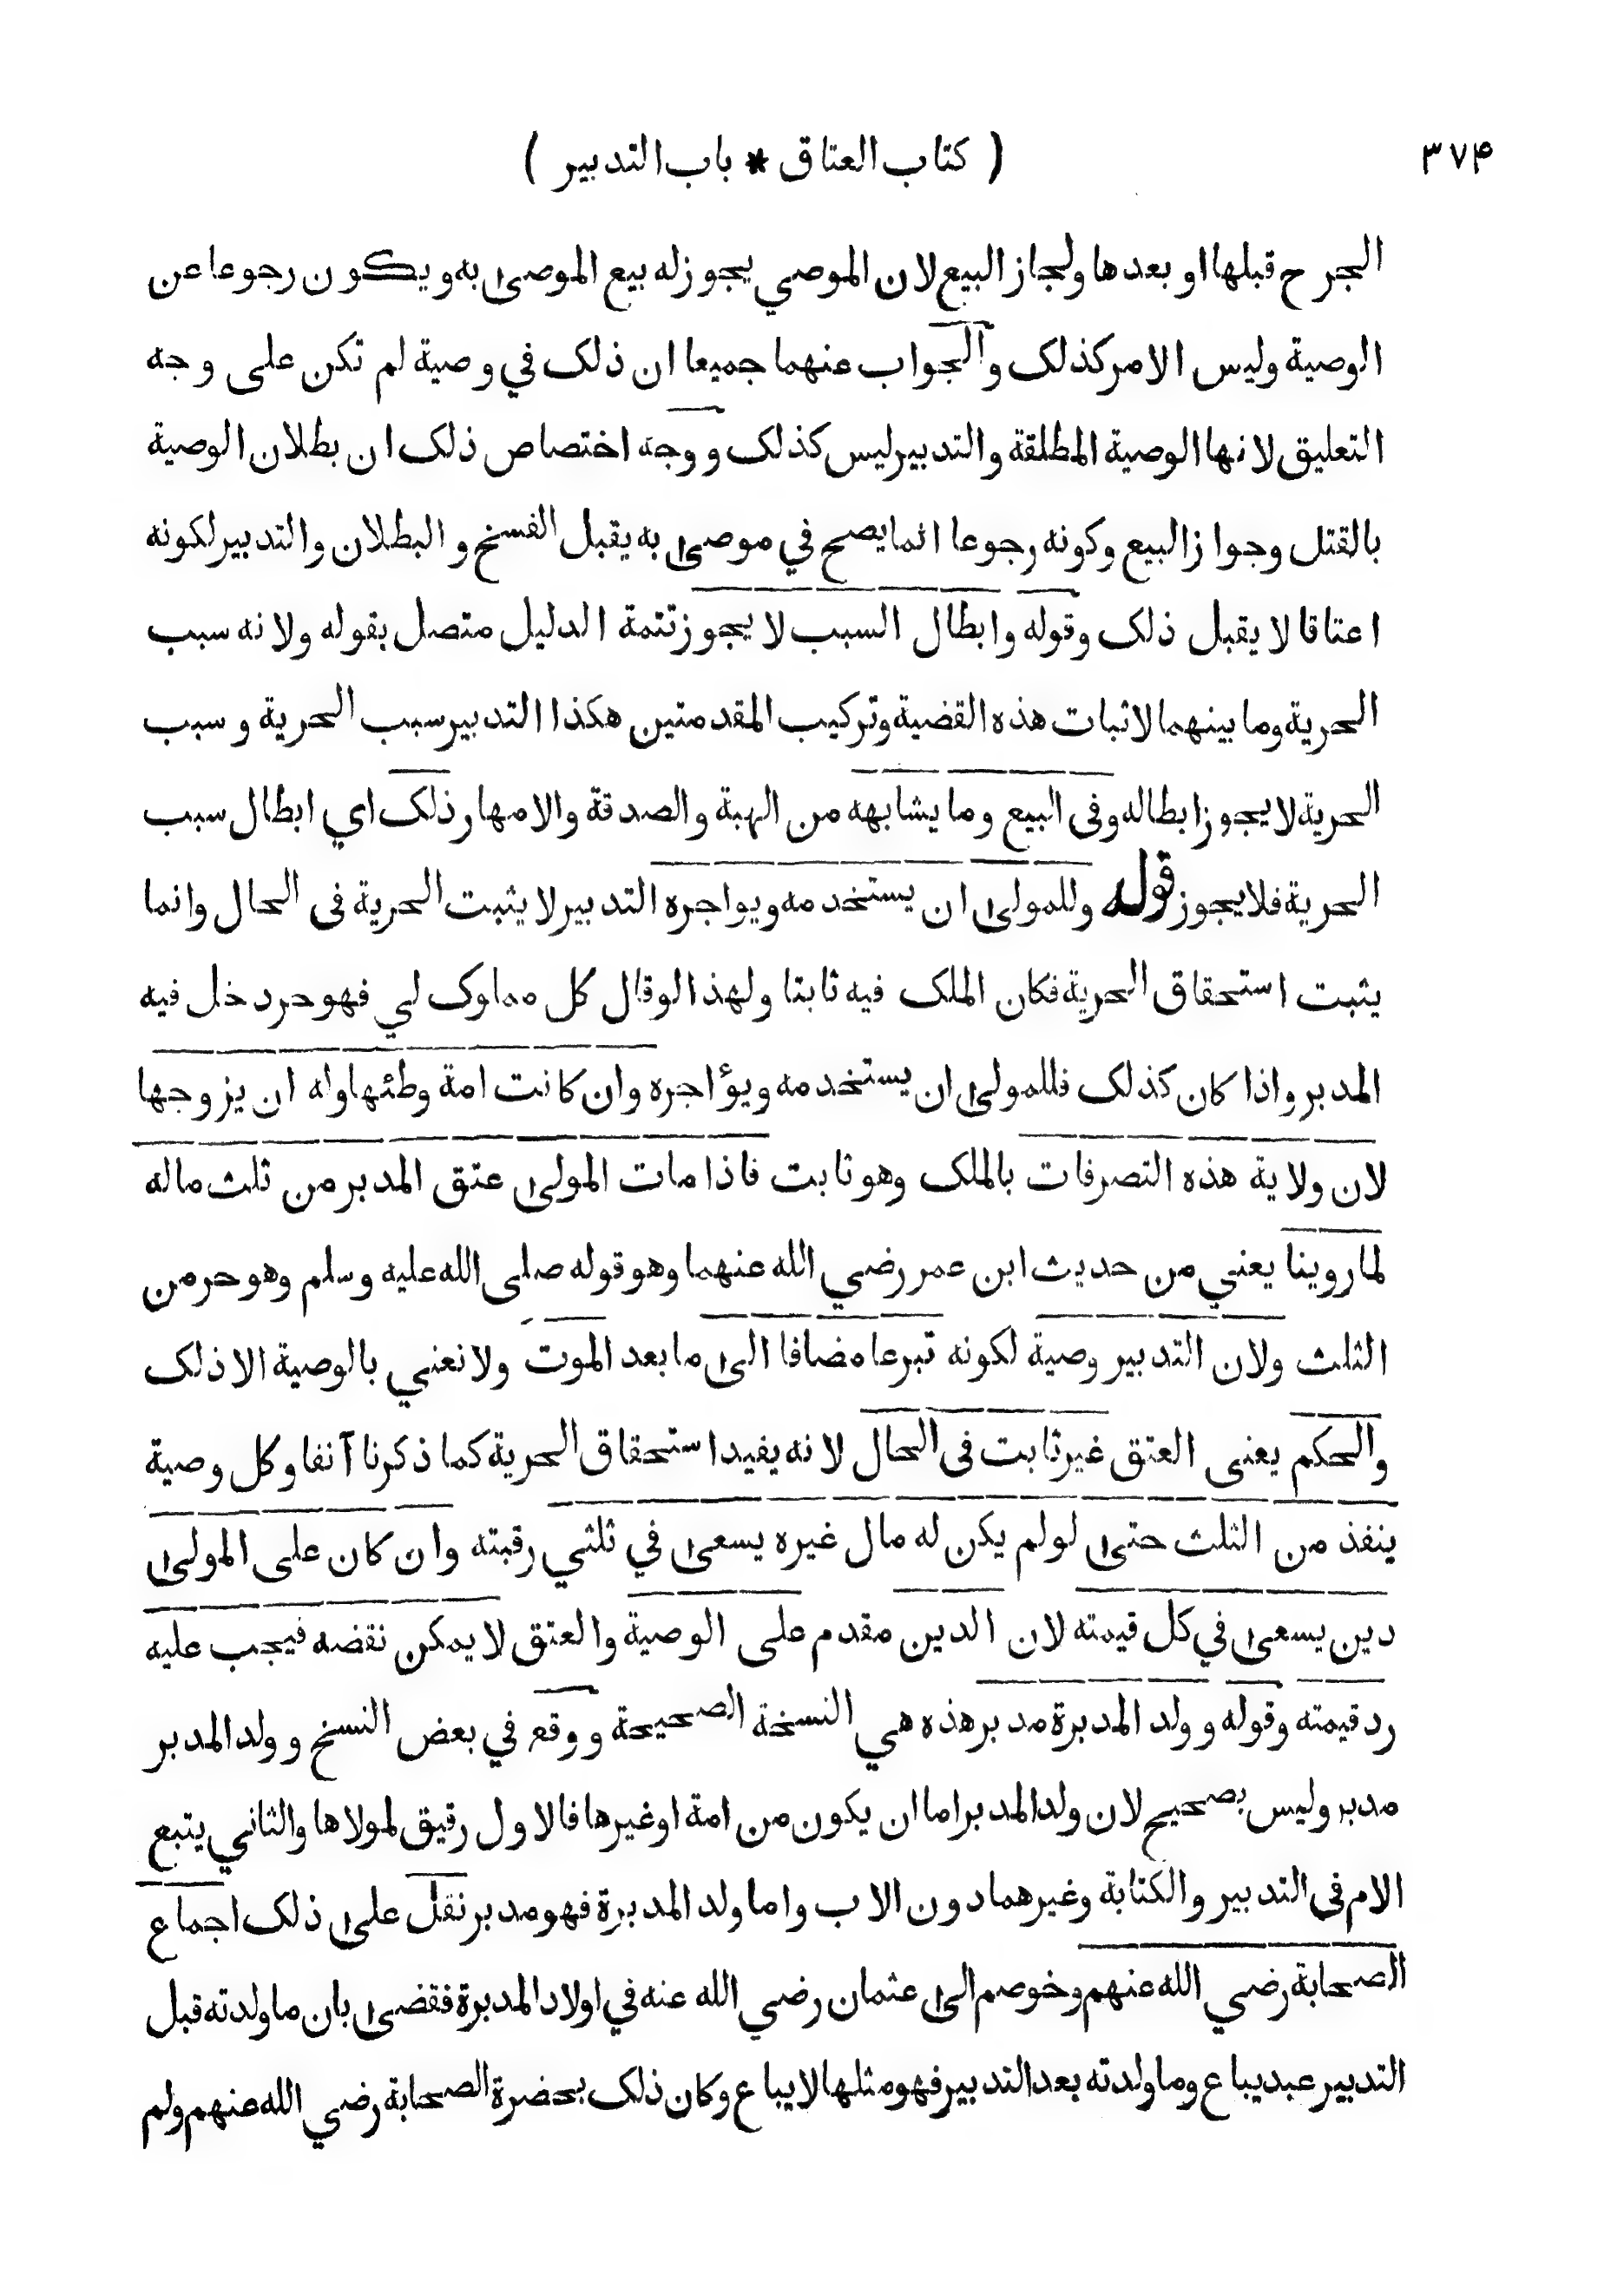 ٣٧۴ ( كتاب العتاق * باب التدبير )
الجرح قبلها او بعدها ولجاز البيع لان الموصي يجوز له بيع الموصى به ويكون رجوعا عن
الوصية وليس الامر كذلك والجواب عنهما جميعا ان ذلك في وصية لم تكن على وجه
التعليق لانها الوصية المطلقة والتدبير ليس كذلك ووجه اختصاص ذلك ان بطلان الوصية
بالقتل وجواز البيع وكونه رجوعا انما يصح في موصى به يقبل الفسخ والبطلان والتدبير لكونه
اعتاقا لا يقبل ذلك وقوله وابطال السبب لا يجوز تتمة الدليل متصل بقوله ولانه سبب
الحرية وما بينهما لاثبات هذه القضية وتركيب المقدمتين هكذا التدبير سبب الحرية وسبب
الحرية لا يجوز ابطاله وفى البيع وما يشابهه من الهبة والصدقة والامهار ذلك اي ابطال سبب
الحرية فلا يجوز قوله وللمولى ان يستخدمه ويواجره التدبير لا يثبت الحرية فى الحال وانما
يثبت استحقاق الحرية فكان الملك فيه ثابتا ولهذا لو قال كل مملوك لي فهو حر دخل فيه
المدبر واذا كان كذلك فللمولى ان يستخدمه ويؤاجره وان كانت امة وطئها وله ان يزوجها
لان ولاية هذه التصرفات بالملك وهو ثابت فاذا مات المولى عتق المدبر من ثلث ماله
لما روينا يعني من حديث ابن عمر رضي الله عنهما وهو قوله صلى الله عليه وسلم وهو حر من
الثلث ولان التدبير وصية لكونه تبرعا مضافا الى ما بعد الموت ولا نعني بالوصية الا ذلك
والحكم يعنى العتق غير ثابت فى الحال لانه يفيد استحقاق الحرية كما ذكرنا آنفا وكل وصية
ينفذ من الثلث حتى لو لم يكن له مال غيره يسعى في ثلثي رقبته وان كان على المولى
دين يسعى في كل قيمته لان الدين مقدم على الوصية والعتق لا يمكن نقضه فيجب عليه
رد قيمته وقوله وولد المدبرة مدبر هذه هي النسخة الصحيحة ووقع في بعض النسخ وولد المدبر
مدبر وليس بصحيح لان ولد المدبر اما ان يكون من امة او غيرها فالاول رقيق لمولاها والثاني يتبع
الام فى التدبير والكتابة وغيرهما دون الاب واما ولد المدبرة فهو مدبر نقل على ذلك اجماع
الصحابة رضي الله عنهم وخوصم الى عثمان رضي الله عنه في اولاد المدبرة فقضى بان ما ولدته قبل
التدبير عبد يباع وما ولدته بعد التدبير فهو مثلها لا يباع وكان ذلك بحضرة الصحابة رضي الله عنهم ولم